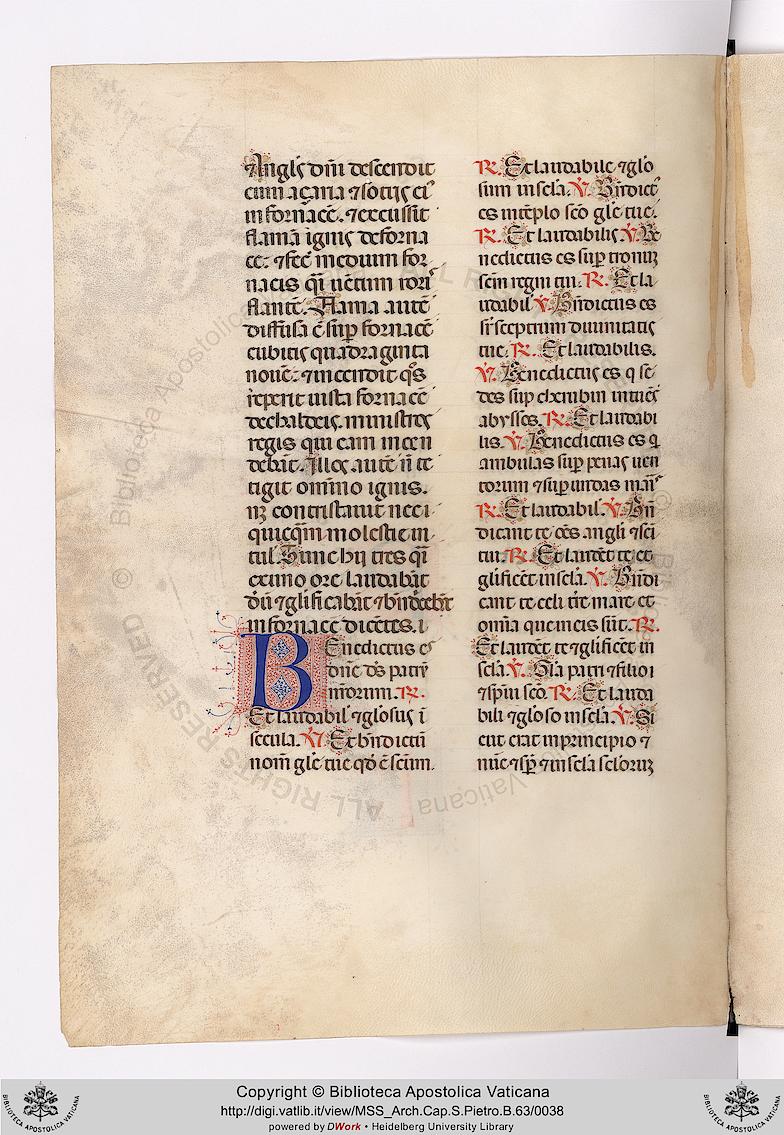 Angl's dñi descendit
cum açaria ⁊ sociis ei'
in fornacē. ⁊ excussit
flamā ignis de forna
ce. ⁊ fec̄ medium for
nacis q̄i uētum rori'
flantē. Flama autē
diffusa ē sup̄ fornacē
cubitis quadraginta
nouē. ⁊ incendit q̄s
reperit iuxta fornacē
de chaldeis. ministros
regis qui eam incen
debāt. Illos autē n̄ te
tigit omnino ignis.
nz contristauit nec i
quicq̄m molestie in
tul. Tunc hij tres q̄i
ex uno ore laudabāt
dn̄ ⁊ glificabāt ⁊ bn̄dicebāt
in fornace dicētes. i
Benedictus es
dn̄e d̄s patrū
nr̄orum. R.
Et laudabil' ⁊ glosus ī
secula. V. Et bn̄dictū
nom̄ gle tue qd̄ ē sc̄um.
R. Et laudabile ⁊ glo
sum in scla. V. Bn̄dict'
es in tēplo sc̄o gle tue.
R. Et laudabilis V. Be
nedictus es sup̄ tronuz
sc̄m regni tui. R. Et la
udabil V. Bn̄dictus es
sr̄ sceptrum diuinitatis
tue. R. Et laudabilis.
V. Benedictus es q se
des sup̄ cherubin intuēs
abyssos. R. Et laudabi
lis. V. Benedictus es q
ambulas sup̄ penas uen
torum ⁊ sup̄ undas mar̄'
R. Et laudabil. V. Bn̄
dicant te oēs angli ⁊ sc̄i
tui. R. Et laudēt te et
glificēt in scla. V. Bn̄di
cant te celi tr̄e mare et
omīa que in eis sūt. R.
Et laudēt te ⁊ glificēt in
scla V. Gla patri ⁊ filio i
⁊ sp̄ui sc̄o. R. Et lauda
bili ⁊ gloso in scla V. Si
cut erat in principio ⁊
nūc ⁊ sp̄ ⁊ in scla scloruz
Copyright © Biblioteca Apostolica Vaticana
http://digi.vatlib.it/view/MSS_Arch.Cap.S.Pietro.B.63/0038
powered by DWork • Heidelberg University Library